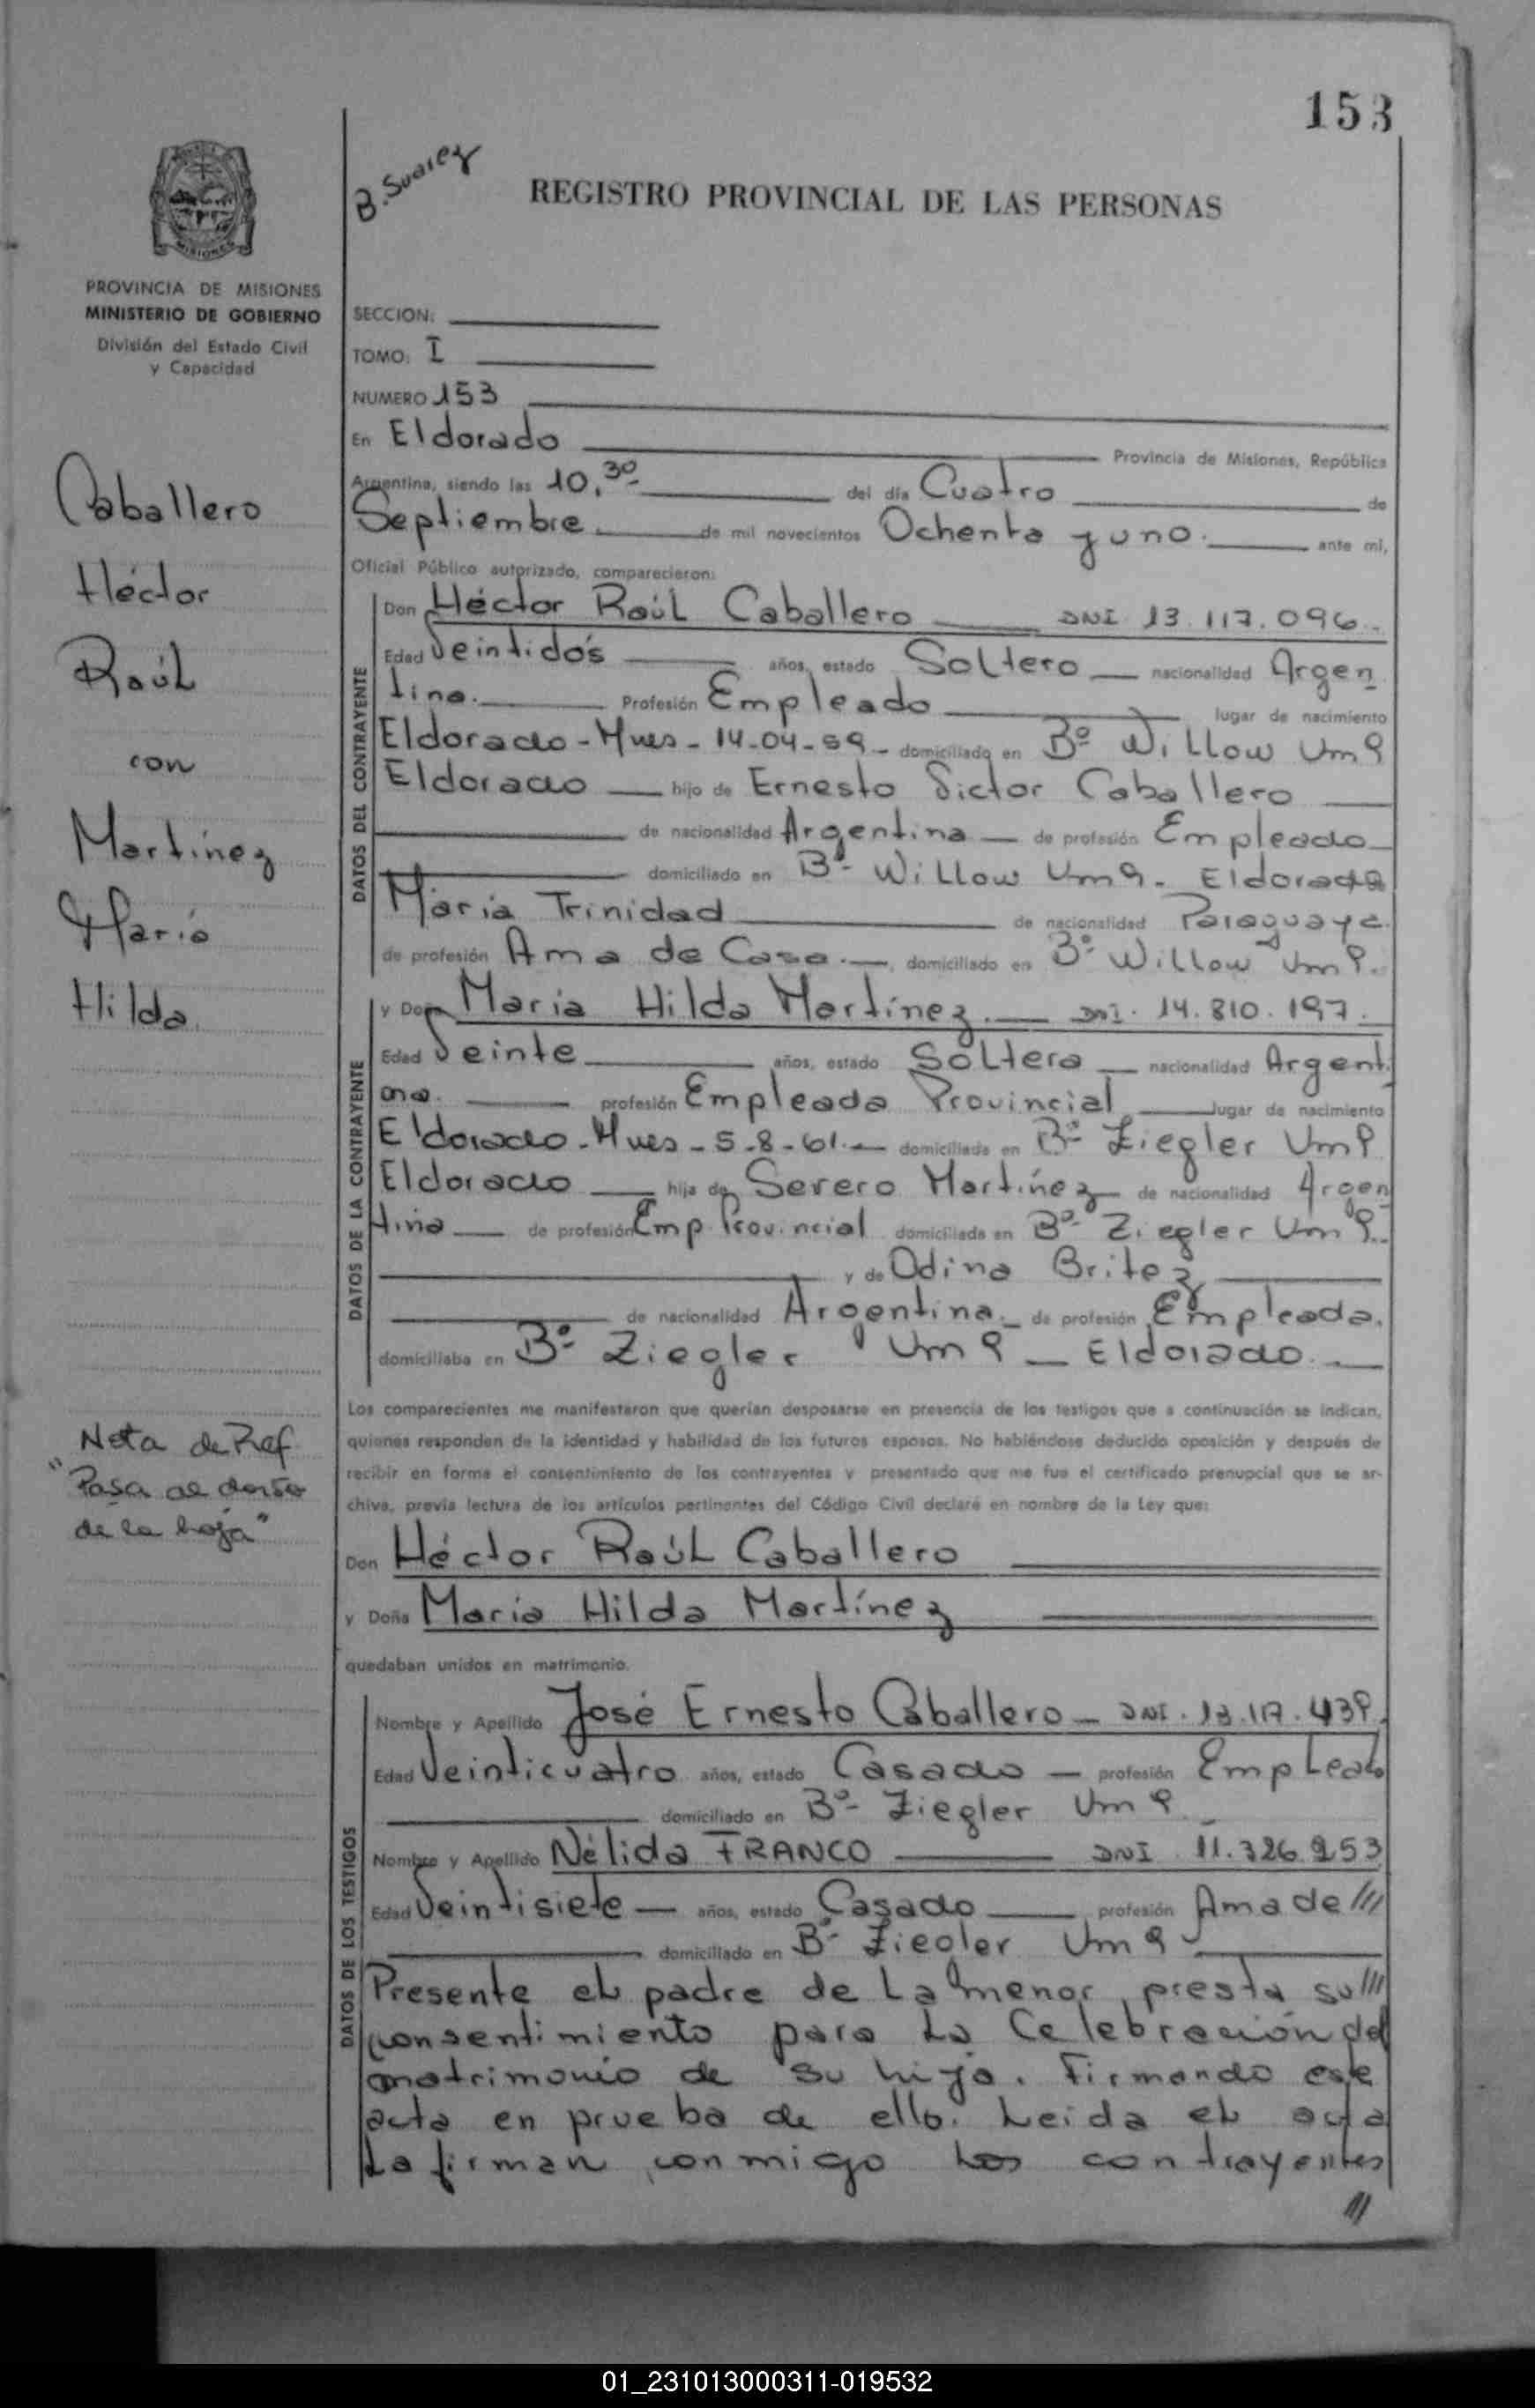 153
B. Suarez
REGISTRO PROVINCIAL DE LAS PERSONAS
MISIONES
PROVINCIA DE MISIONES
MINISTERIO DE GOBIERNO
División del Estado Civil
y Capacidad
Caballero
Héctor
Raúl
con
Martínez
María
Hilda
Nota de Ref
"Pasa al dorso
de la hoja"
SECCION:
TOMO: I
NUMERO 153
En Eldorado Provincia de Misiones, República
Argentina, siendo las 10,30 del día Cuatro de
Septiembre de mil novecientos Ochenta y uno. ante mi,
Oficial Público autorizado, comparecieron:
DATOS DEL CONTRAYENTE
Don Héctor Raúl Caballero DNI 13.117.096.
Edad Veintidós años, estado Soltero nacionalidad Argen
tina. Profesión Empleado lugar de nacimiento
Eldorado - Mnes - 14-04-59 - domiciliado en Bº Willow Km 9
Eldorado hijo de Ernesto Victor Caballero
de nacionalidad Argentina de profesión Empleado
domiciliado en Bº Willow Km 9. Eldorado
María Trinidad de nacionalidad Paraguaya.
de profesión Ama de Casa. domiciliado en Bº Willow Km 9.
DATOS DE LA CONTRAYENTE
y Doña María Hilda Martínez. DNI. 14.810.197.
Edad Veinte años, estado Soltera nacionalidad Argenti
na. profesión Empleada Provincial lugar de nacimiento
Eldorado - Mnes - 5-8-61. domiciliada en Bº Ziegler Km 9
Eldorado hija de Severo Martínez de nacionalidad Argen
tina de profesión Emp. Provincial domiciliada en Bº Ziegler Km 9.
y de Odina Britez
de nacionalidad Argentina. de profesión Empleada.
domiciliaba en Bº Ziegler Km 9 - Eldorado.
Los comparecientes me manifestaron que querían desposarse en presencia de los testigos que a continuación se indican,
quienes responden de la identidad y habilidad de los futuros esposos. No habiéndose deducido oposición y después de
recibir en forma el consentimiento de los contrayentes y presentado que me fue el certificado prenupcial que se ar-
chiva, previa lectura de los artículos pertinentes del Código Civil declaré en nombre de la Ley que:
Don Héctor Raúl Caballero
y Doña María Hilda Martínez
quedaban unidos en matrimonio.
DATOS DE LOS TESTIGOS
Nombre y Apellido José Ernesto Caballero - DNI.
Edad Veinticuatro años, estado Casado - profesión Empleado
domiciliado en Bº Ziegler Km 9
Nombre y Apellido Nélida FRANCO DNI
Edad Veintisiete años, estado Casado profesión Ama de ///
domiciliado en Bº Ziegler Km 9
Presente el padre de la menor, presta su ///
consentimiento para la Celebración del
matrimonio de su hija. Firmando este
acta en prueba de ello. Leida el acta
la firman conmigo los contrayentes
///
01_231013000311-019532